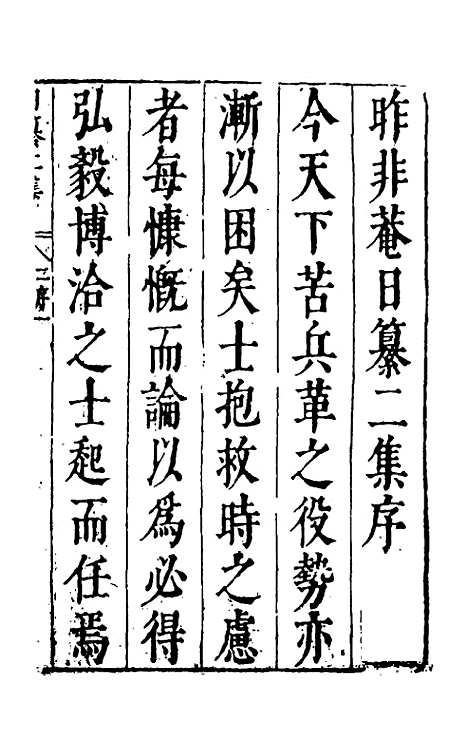 昨非菴日纂二集序
今天下苦兵革之役勢亦
漸以困矣士抱救時之慮
者每慷慨而論以爲必得
弘毅博洽之士起而任焉